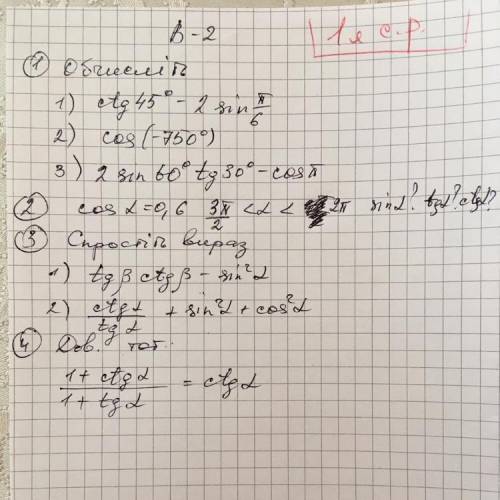 В-2
1я с.р.
① Обчисліть
1) ctg 45° - 2 sin π/6
2) cos(-750°)
3) 2 sin 60° tg 30° - cos π
② cos α = 0,6 3π/2 < α < 2π sin α? tg α? ctg α?
③ Спростіть вираз
1) tg β ctg β - sin² α
2) ctg α / tg α + sin² α + cos² α
④ Дов. тот.
1 + ctg α / 1 + tg α = ctg α